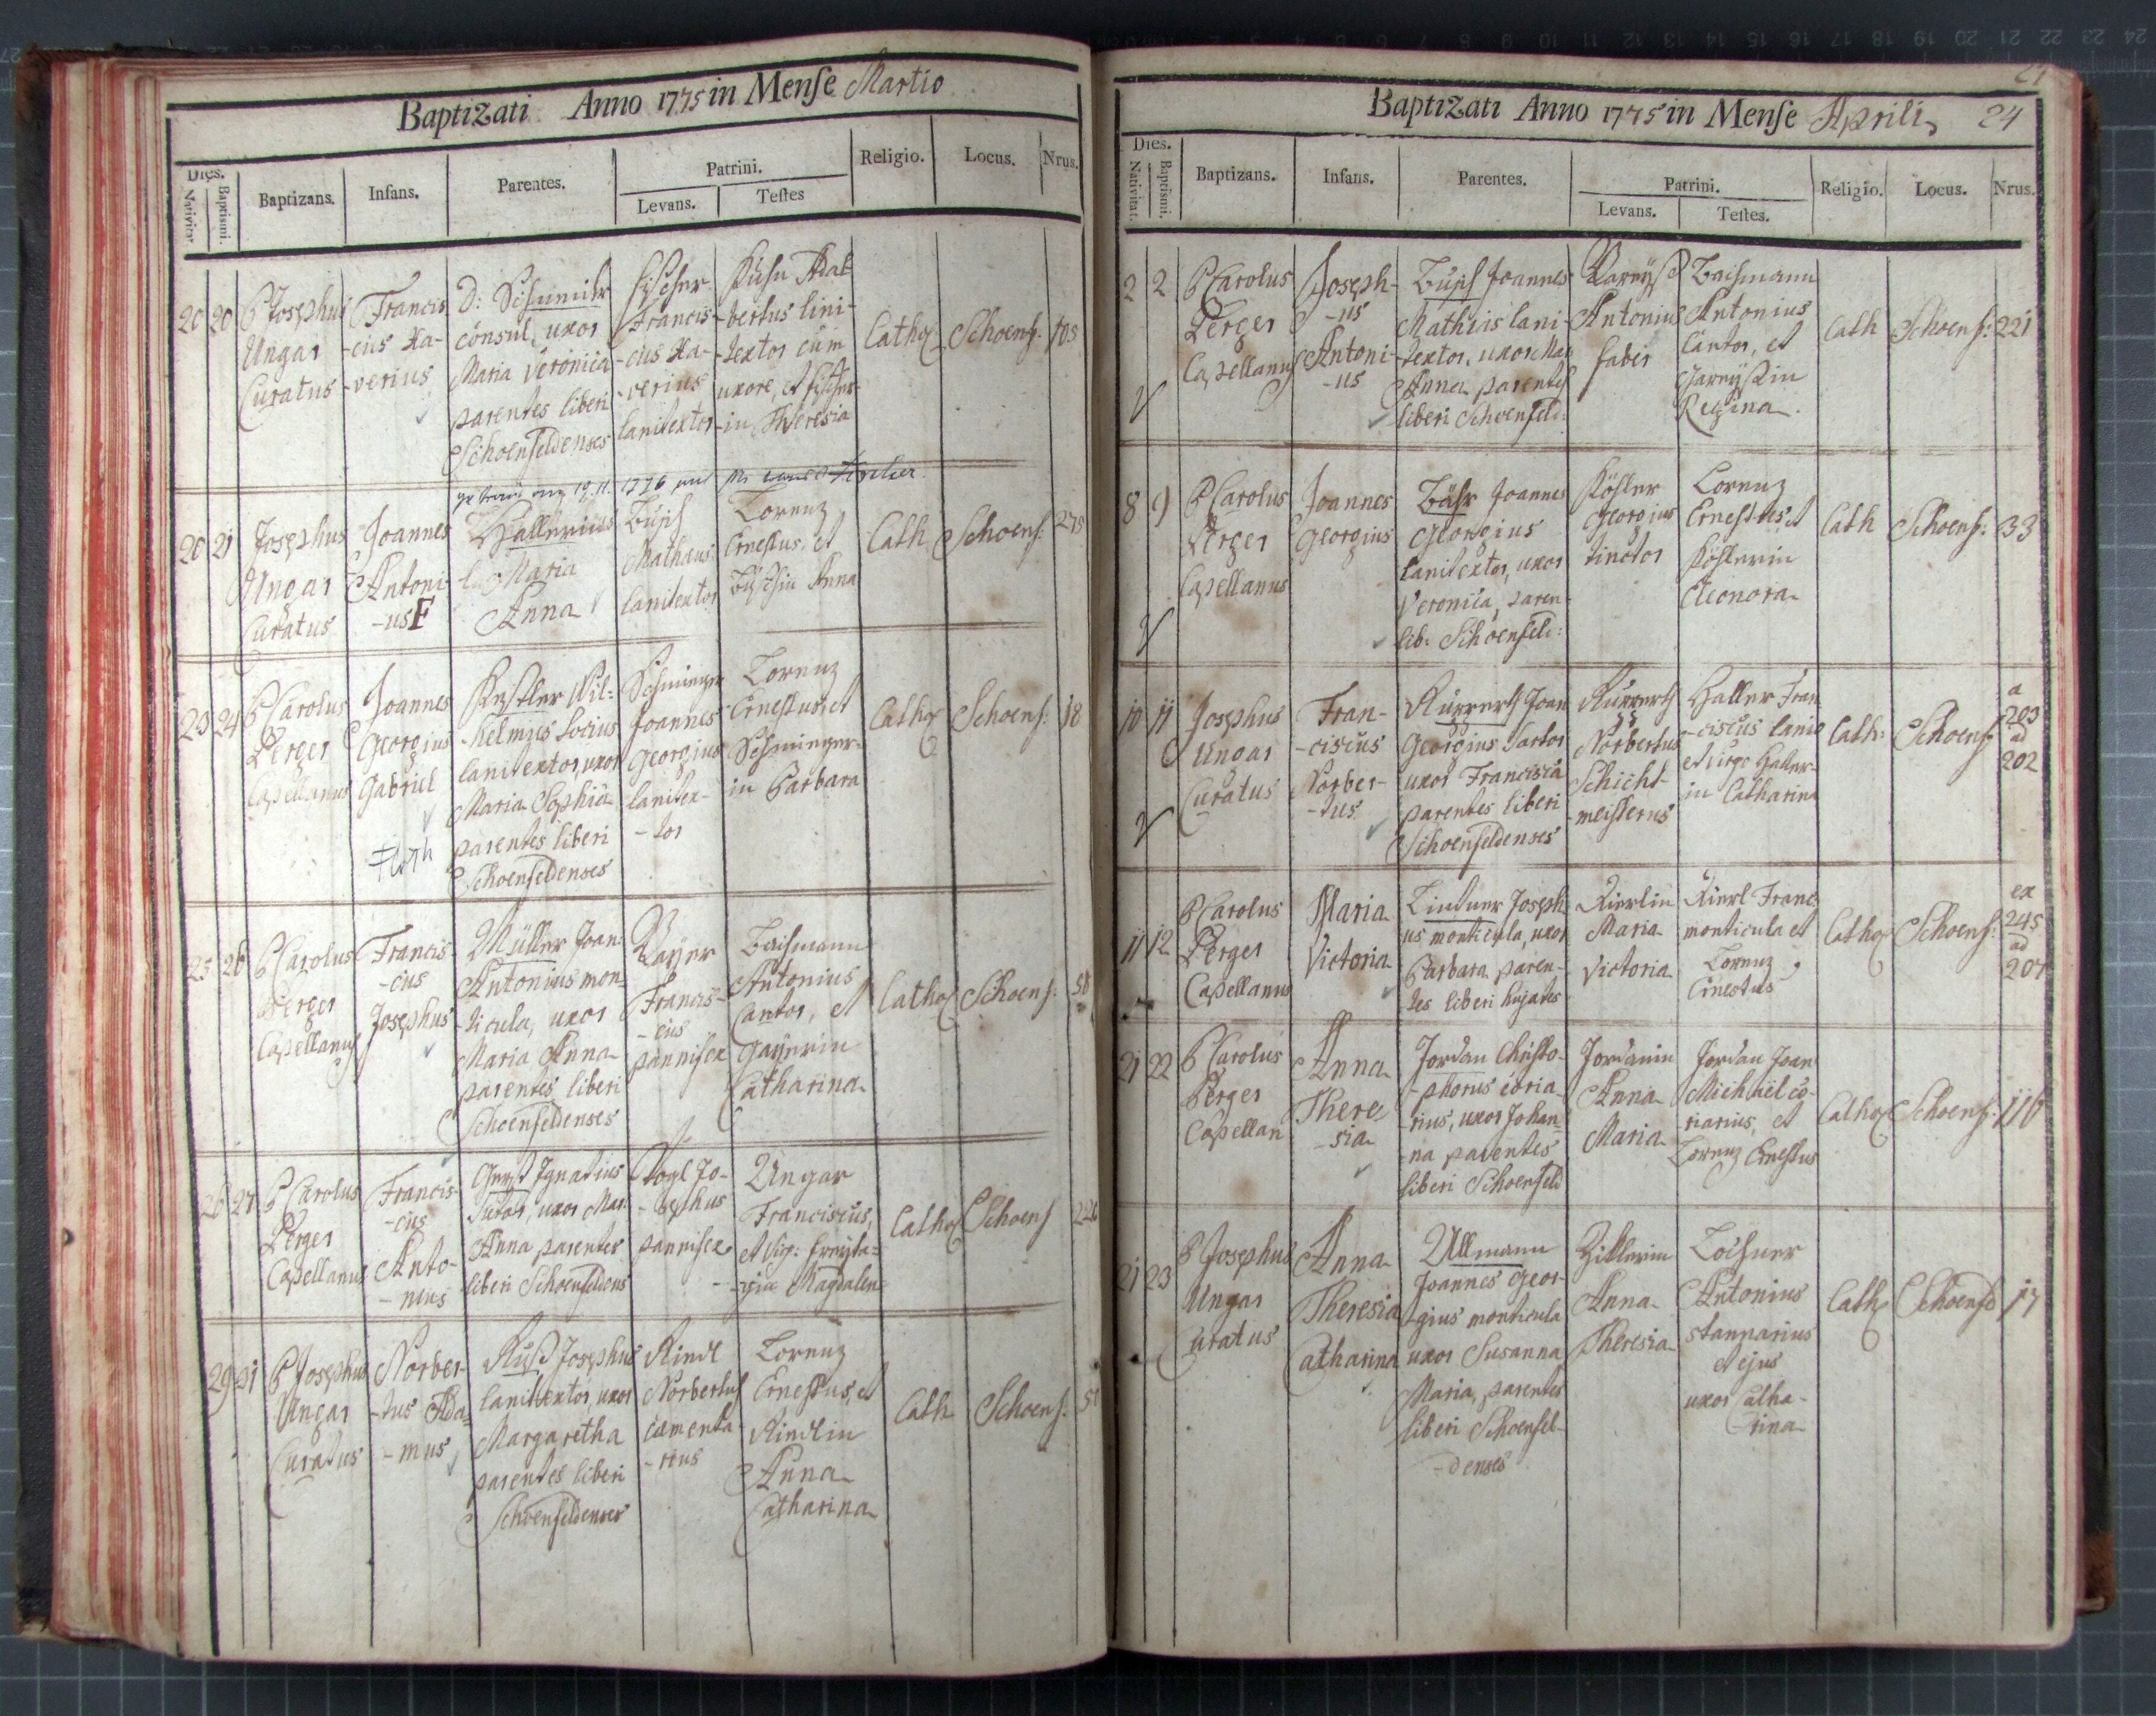 Baptizati Anno 1775 in Mense Martio
Dies.
Nativitat.
Baptismi.
Baptizans.
Infans.
Parentes.
Patrini.
Levans.
Testes
Religio.
Locus.
Nrus.
20
20
P Josephus
Ungar
Curatus
Francis
-cus Xa-
-verius
D: Schmidt
consul, uxor
Maria Veronica
parentes liberi
Schoenfeldenses
Fischer
Francis-
-cus Xa-
-verius
lanitextor
Kuhn Adal-
-bertus lini-
-textor cum
uxore, et Fischer-
-in Theresia
Cathol
Schoenf:
105
20
21
Josephus
Ungar
Curatus
Joannes
Antoni-
-us F
Maria
Anna
Mathaus
lanitextor
Lorenz
Ernestus, et
Anna
Cath
Schoenf:
275
23
24
P Carolus
Perger
Capellanus
Joannes
Georgius
Gabriel
Wil-
-helmus Socius
lanitextor, uxor
Maria Sophia
parentes liberi
Schoenfeldenses
Schminger
Joannes
Georgius
lanitex-
-tor
Lorenz
Ernestus, et
Schminger-
in Barbara
Cathol
Schoenf:
18
25
26
P Carolus
Perger
Capellanus
Francis-
-cus
Josephus
Müller Joan:
Antonius mon-
-ticula, uxor
Maria Anna
parentes liberi
Schoenfeldenses
Gayer
Francis-
-cus
pannifex
Bachmann
Antonius
Cantor, et
Gayerin
Catharina
Cathol
Schoenf:
58
26
27
P Carolus
Perger
Capellanus
Francis-
-cus
Anto-
-nius
Ignatius
Sutor, uxor Mar:
Anna parentes
liberi Schoenfeldens
Vogl Jo-
-sephus
pannifex
Ungar
Franciscus,
et Virg:
Magdalen
Cathol
Schoenf
29
31
P Josephus
Ungar
Curatus
Norber-
-tus Ada-
-mus
Ruß Josephus
lanitextor, uxor
Margaretha
parentes liberi
Schoenfeldenses
Rindl
Norbertus
caementa-
-rius
Lorenz
Ernestus, et
Rindlin
Anna
Catharina
Cath
Schoenf:
51
Baptizati Anno 1775 in Mense Aprili
24
Dies.
Nativitat.
Baptismi.
Baptizans.
Infans.
Parentes.
Patrini.
Levans.
Testes.
Religio.
Locus.
Nrus.
2
2
P Carolus
Perger
Capellanus
Joseph-
-us
Antoni-
-us
Joannes
Mathias lani-
-textor, uxor Mar
Anna parentes
liberi Schoenfeld:
Antonius
faber
Bachmann
Antonius
Cantor, et
Regina
Cath
Schoenf:
221
8
9
P Carolus
Perger
Capellanus
Joannes
Georgius
Bähr Joannes
Georgius
lanitextor, uxor
Veronica, paren-
lib: Schoenfeld:
Köhler
Georgius
tinctor
Lorenz
Ernestus et
Köhlerin
Eleonora
Cath
Schoenf:
33
10
11
Josephus
Ungar
Curatus
Fran-
-ciscus
Norber-
-tus
Ruppert Joan
Georgius Sartor
uxor Francisca
parentes liberi
Schoenfeldenses
Ruppert
Norbertus
Schicht-
-meisterus
Haller Fran
-ciscus lanio
et virgo Haller-
in Catharina
Cath:
Schoenf
a
203
ad
202
11
12
P Carolus
Perger
Capellanus
Maria
Victoria
Lindner Joseph
us monticula, uxor
Barbara paren-
tes liberi hujates
Kierlin
Maria
Victoria
Kierl Franc
monticula et
Lorenz
Ernestus
Cathol
Schoenf:
ex
245
ad
207
21
22
P Carolus
Perger
Capellan
Anna
There
-sia
Jordan Christo-
-phorus coria-
-rius, uxor Johan-
-na parentes
liberi Schoenfeld
Jordanin
Anna
Maria
Jordan Joan
Michael co-
riarius, et
Lorenz Ernestus
Cathol
Schoenf:
116
21
23
P Josephus
Ungar
Curatus
Anna
Theresia
Catharina
Ullmann
Joannes Geor-
gius monticula
uxor Susanna
Maria, parentes
liberi Schoenfel-
-denses
Zittlerin
Anna
Theresia
Lochner
Antonius
stannarius
et ejus
uxor Catha-
rina
Cath
Schoenf
17